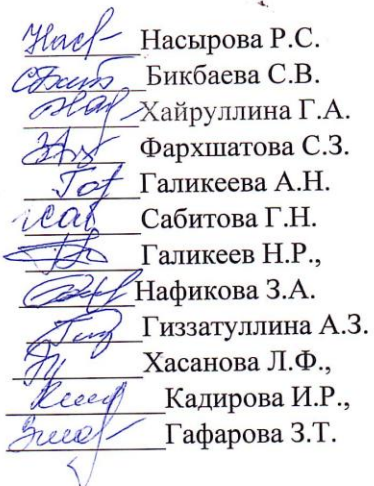 Насырова Р.С.
Бикбаева С.В.
Хайруллина Г.А.
Фархшатова С.З.
Галикеева А.Н.
Сабитова Г.Н.
Галикеев Н.Р.,
Нафикова З.А.
Гиззатуллина А.З.
Хасанова Л.Ф.,
Кадирова И.Р.,
Гафарова З.Т.